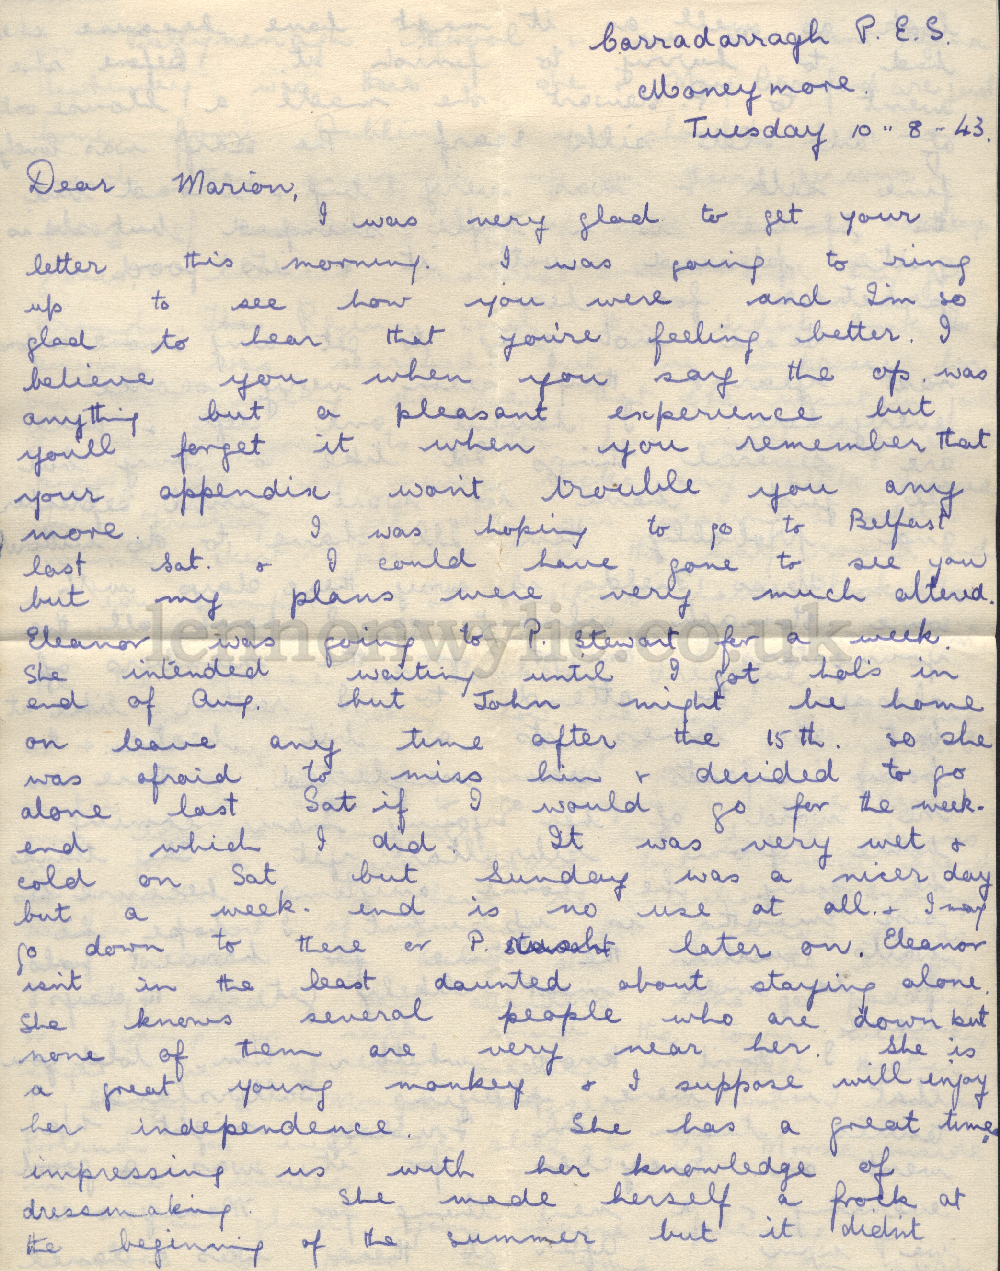 Carradarragh P.E.S.
Moneymore.
Tuesday 10-8-43.
Dear Marion,
I was very glad to get your
letter this morning. I was going to ring
up to see how you were and I'm so
glad to hear that you're feeling better. I
believe you when you say the op was
anything but a pleasant experience but
you'll forget it when you remember that
your appendix won't trouble you any
more. I was hoping to go to Belfast
last Sat. & I could have gone to see you
but my plans were very much altered.
Eleanor was going to P. Stewart for a week.
She intended waiting until I got hols in
end of Aug. but John might be home
on leave any time after the 15th. so she
was afraid to miss him & decided to go
alone last Sat if I would go for the week-
end which I did. It was very wet &
cold on Sat but Sunday was a nicer day
but a week-end is no use at all. & I may
go down to there or P. later on. Eleanor
isn't in the least daunted about staying alone.
She knows several people who are down but
none of them are very near her. She is
a great young monkey & I suppose will enjoy
her independence. She has a great time,
impressing us with her knowledge of
dressmaking. She made herself a frock at
the beginning of the summer but it didn't
lennonwylie.co.uk